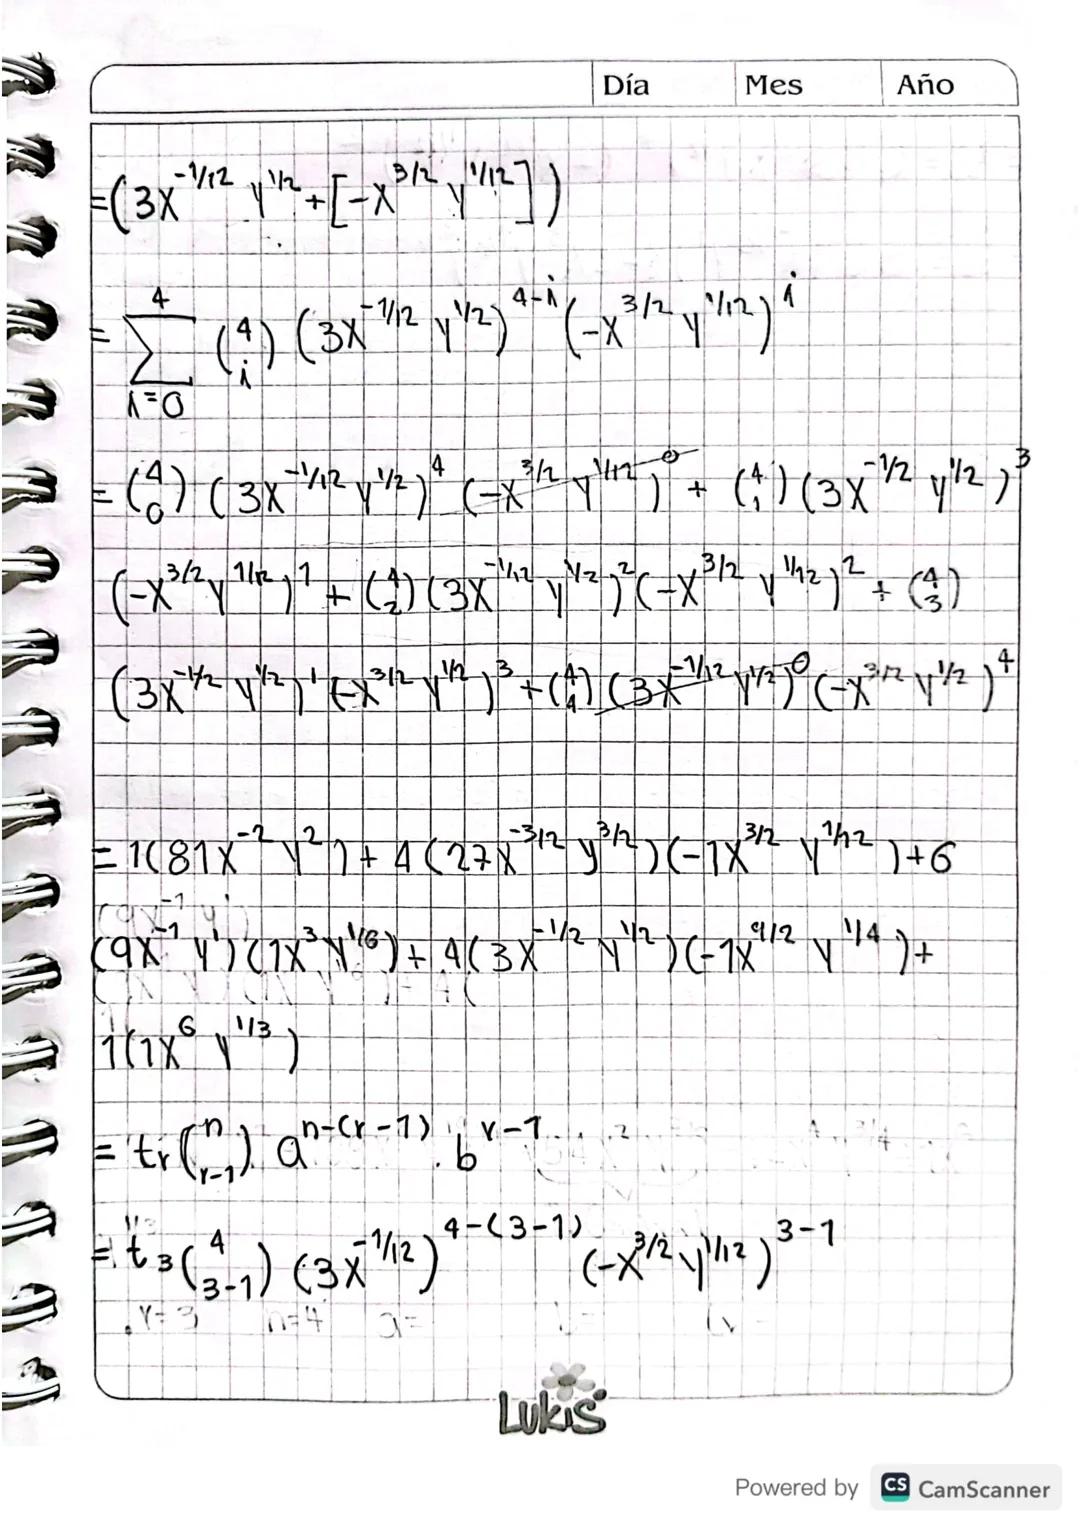 Día Mes Año
=(3x^{-1/12} y^{1/2}+[-x^{3/2} y^{1/12}])
= \sum_{i=0}^{4} (4 i) (3x^{-1/12} y^{1/2})^{4-i} (-x^{3/2} y^{1/12})^{i}
= (4 0) (3x^{-1/12} y^{1/2})^{4} (-x^{3/2} y^{1/12})^{0} + (4 1) (3x^{-1/2} y^{1/2})^{3}
(-x^{3/2} y^{1/12})^{1} + (4 2) (3x^{-1/12} y^{1/2})^{2} (-x^{3/2} y^{1/12})^{2} + (4 3)
(3x^{-1/2} y^{1/2})^{1} (-x^{3/2} y^{1/2})^{3} + (4 4) (3x^{-1/12} y^{1/2})^{0} (-x^{3/2} y^{1/2})^{4}
= 1(81x^{-2} y^{2}) + 4(27x^{-3/2} y^{3/2})(-1x^{3/2} y^{1/12})+6
(9x^{-1} y^{1})(1x^{3} y^{1/6})+ 4(3x^{-1/2} y^{1/2})(-1x^{9/2} y^{1/4})+
1(1x^{6} y^{1/3})
= tr (n r-1) a^{n-(r-1)} . b^{r-1}
= t_{3} (4 3-1) (3x^{-1/12})^{4-(3-1)} (-x^{3/2} y^{1/12})^{3-1}
r=3 n=4 a=
Lukis
Powered by CS CamScanner